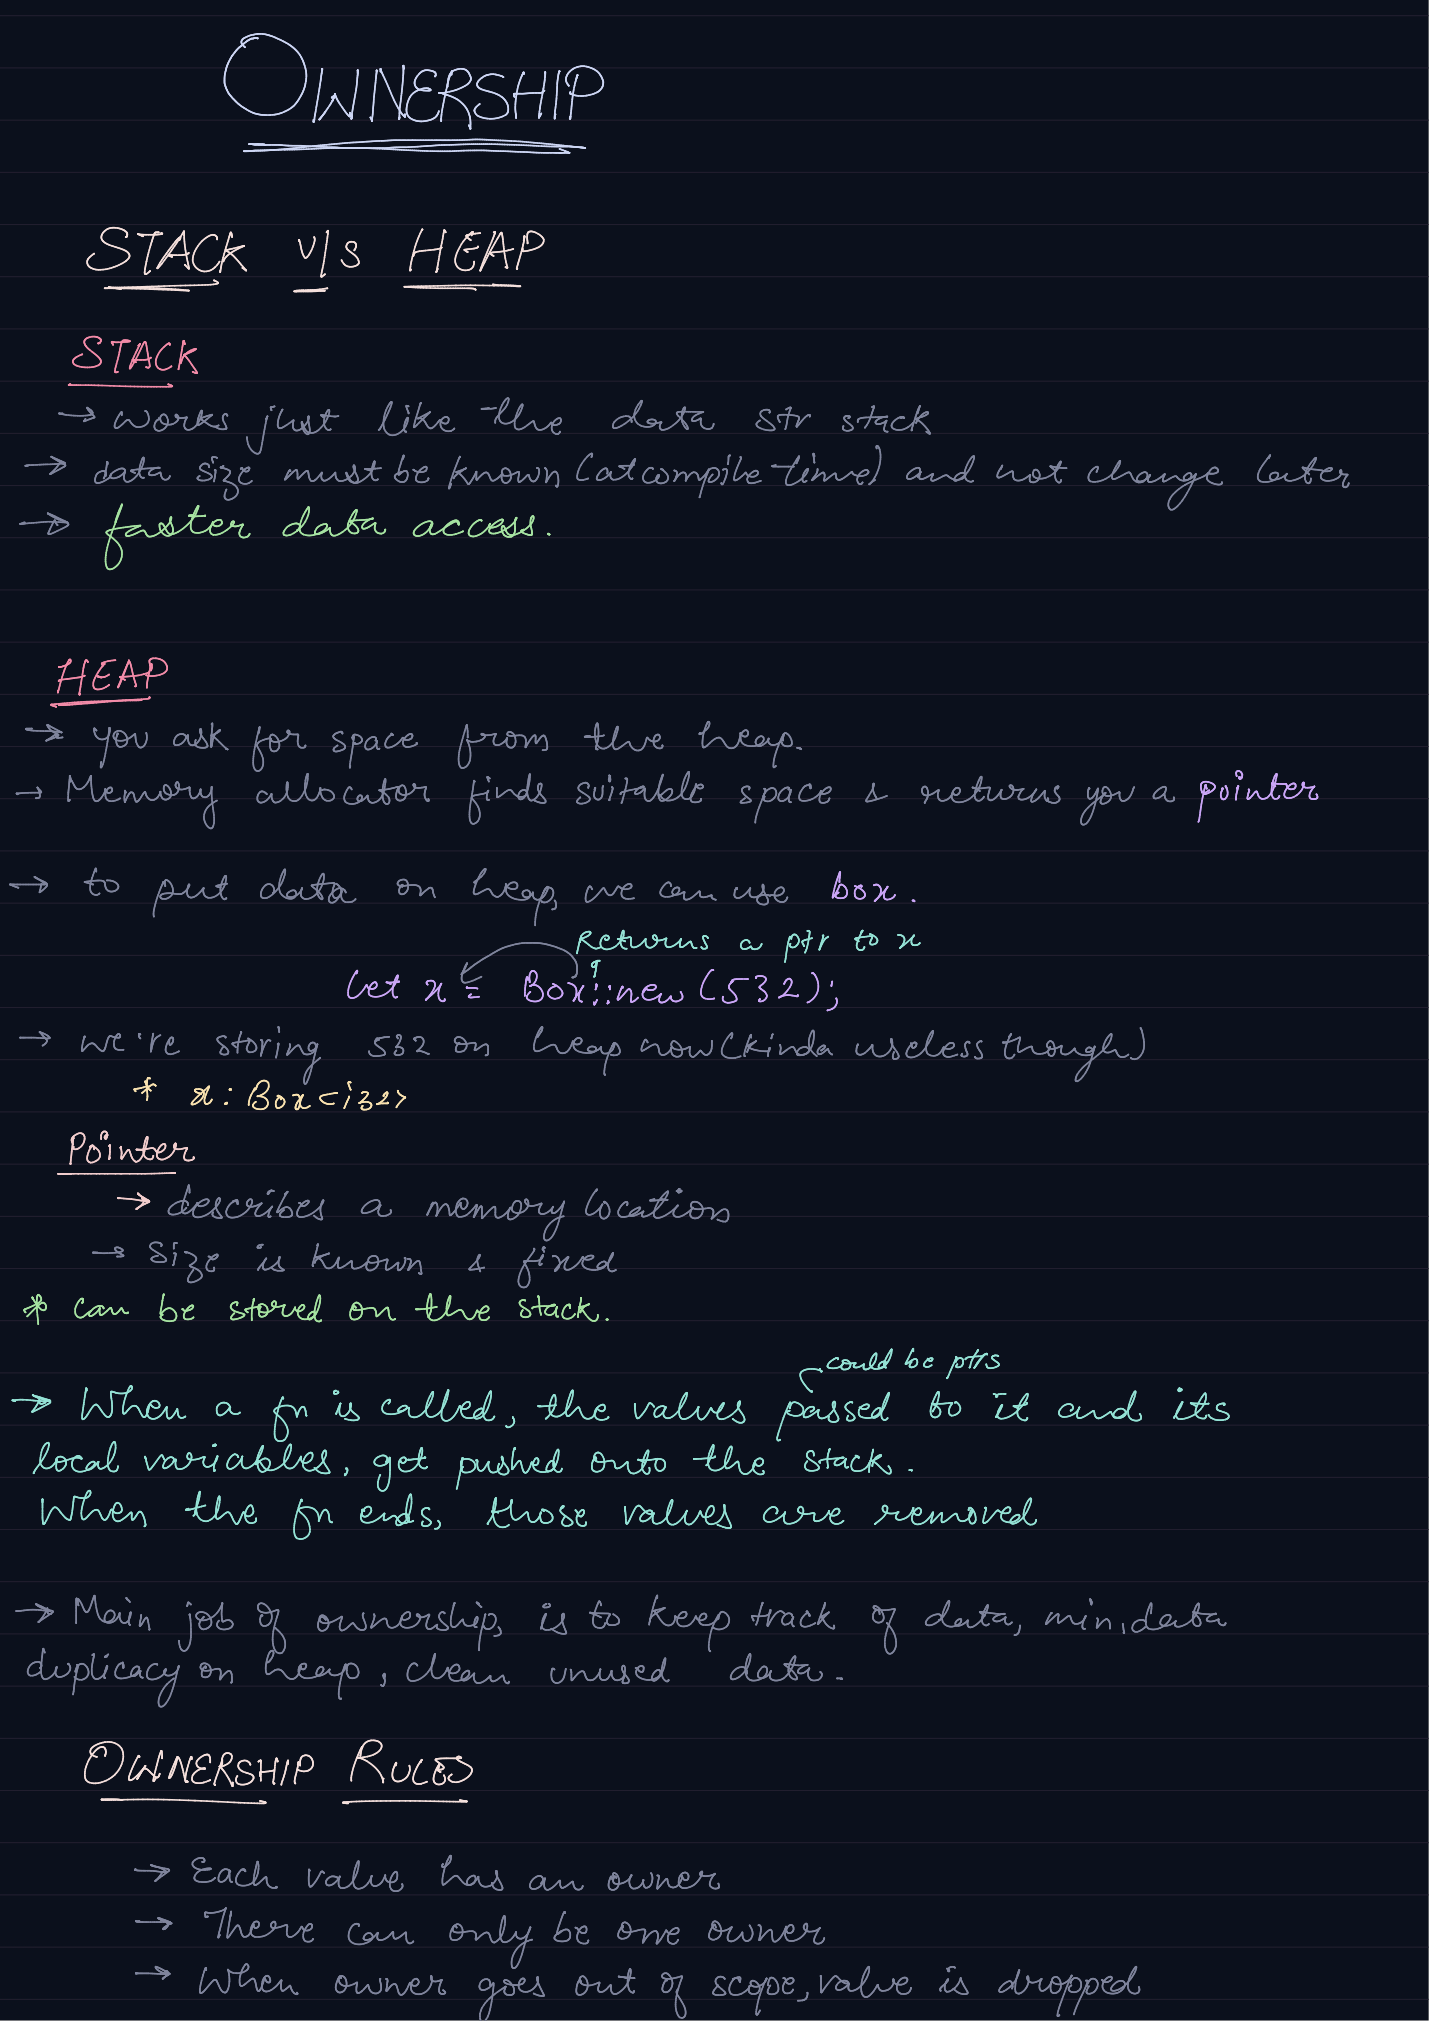 OWNERSHIP
STACK v/s HEAP
STACK
→ works just like the data str stack
→ data size must be known (at compile time) and not change later
→ faster data access.
HEAP
→ you ask for space from the heap.
→ Memory allocator finds suitable space & returns you a pointer
→ to put data on heap, we can use box.
Returns a ptr to x
let x = Box::new(532);
→ we're storing 532 on heap now (kinda useless though)
* x: Box<i32>
Pointer
→ describes a memory location
→ Size is known & fixed
* can be stored on the stack.
could be ptrs
→ When a fn is called, the values passed to it and its
local variables, get pushed onto the stack.
When the fn ends, those values are removed
→ Main job of ownership, is to keep track of data, min. data
duplicacy on heap, clean unused data.
OWNERSHIP RULES
→ Each value has an owner
→ There can only be one owner
→ When owner goes out of scope, value is dropped